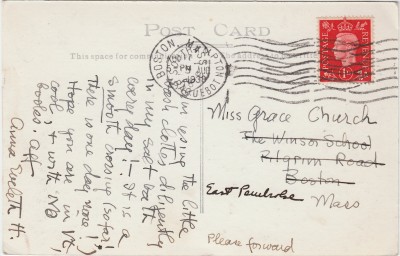 POST CARD
This space for com
BOSTON, M.
HAMPTON
PAQUEBOT
1938
POSTAGE
REVENUE
I'm using the little
wash clothes diligently
in my salt bath
every day! – It is a
smooth crossing (so far!
There is one day more!)
Hope you are in Vt.,
cool, & with No
boobies. Aff
Anna
H.
Miss Grace Church
The Winsor School
Pilgrim Road
Boston
East Pembroke
Mass
Please forward